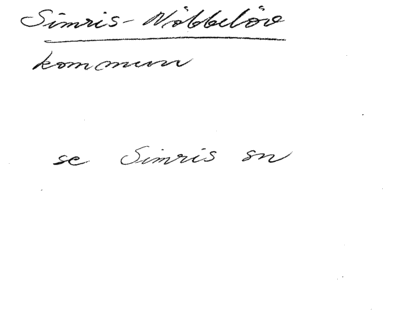 Simris-Nöbbelöv
kommun
se Simris sn